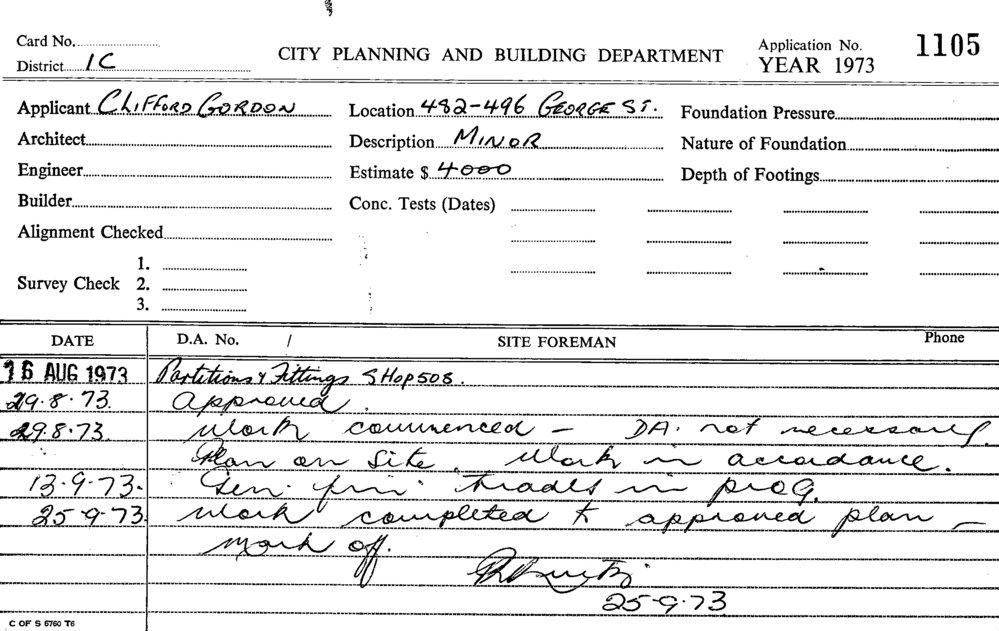 Card No.
District 1C
CITY PLANNING AND BUILDING DEPARTMENT
Application No. 1105
YEAR 1973
Applicant CLIFFORD GORDON
Location 482-496 GEORGE ST.
Foundation Pressure
Architect
Description MINOR
Nature of Foundation
Engineer
Estimate $ 4000
Depth of Footings
Builder
Conc. Tests (Dates)
Alignment Checked
Survey Check
1.
2.
3.
DATE
D.A. No. /
SITE FOREMAN
Phone
16 AUG 1973 Partitions & Fittings SHOP 508.
29.8.73. Approved.
29.8.73. Work commenced - DA. not necessary.
Plan on Site. Work in accordance.
13-9-73. Gen. fin. trades in prog.
25-9-73. Work completed to approved plan -
mark off.
25-9-73
C OF S 6760 T6